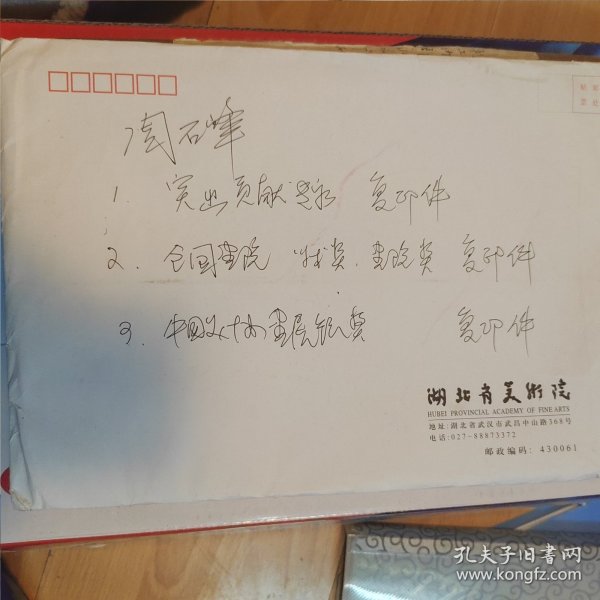 周石峰
1. 突出贡献专家 复印件
2. 全国画院 优秀奖. 画院奖 复印件
3. 中国 画展银奖 复印件
湖北省美术院
HUBEI PROVINCIAL ACADEMY OF FINE ARTS
地址:湖北省武汉市武昌中山路368号
电话:027-88873372
邮政编码: 430061
孔夫子旧书网
www.kongfz.com